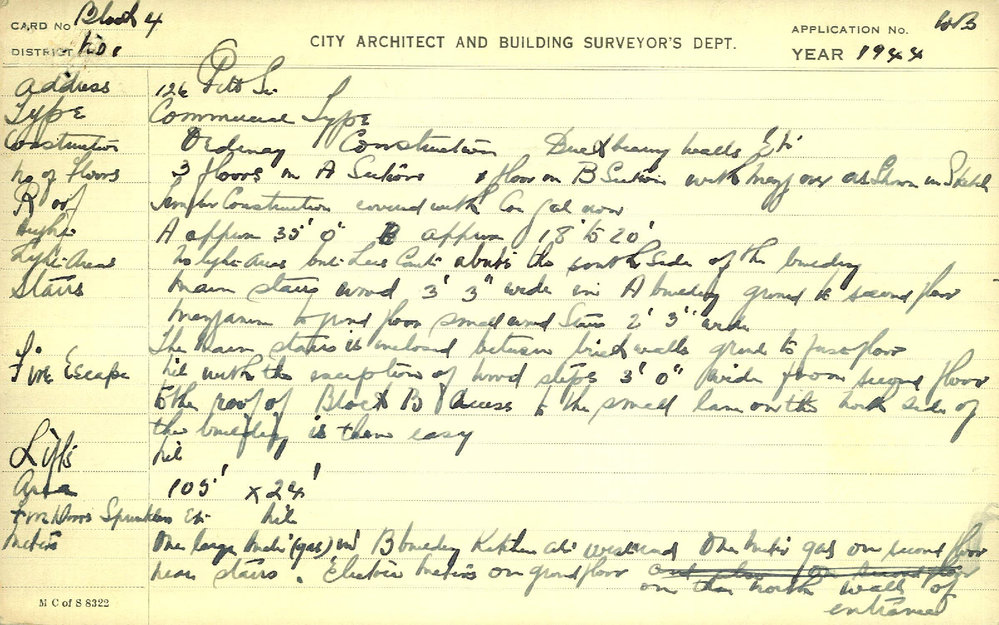 CARD No Block 4
DISTRICT No.
CITY ARCHITECT AND BUILDING SURVEYOR'S DEPT.
APPLICATION No. WB
YEAR 1944
Address 126 Pitt St
Type Commercial Type
Construction Ordinary Construction Brick bearing walls Etc
No of Floors 3 floors in A Sections floor on B Section with mezz over as Shown in Sketch
Roof Timber Construction covered with Cor gal iron
Height A approx 35' 0" B approx 18' to 20'
Light Areas No light Areas but abuts the south side of the building
Stairs Main stairs wood 3' 3" wide in A building ground to second floor
Mezzanine to grnd floor small wood Stairs 2' 3" wide
The main stairs is enclosed between brick walls grnd to first floor
Fire Escape Nil with the exception of wood steps 3' 0" wide from second floor
to the roof of Block B Access to the small lane on the north side of
the building is then easy
Lifts Nil
Area 105' x 24'
Fire Doors Sprinklers Etc Nil
Meters One large Meter (gas) in B building Kitchen at west end One Meter gas on second floor
near stairs. Electric Meters on grnd floor and also on second floor
on the north walls of
entrance
M C of S 8322